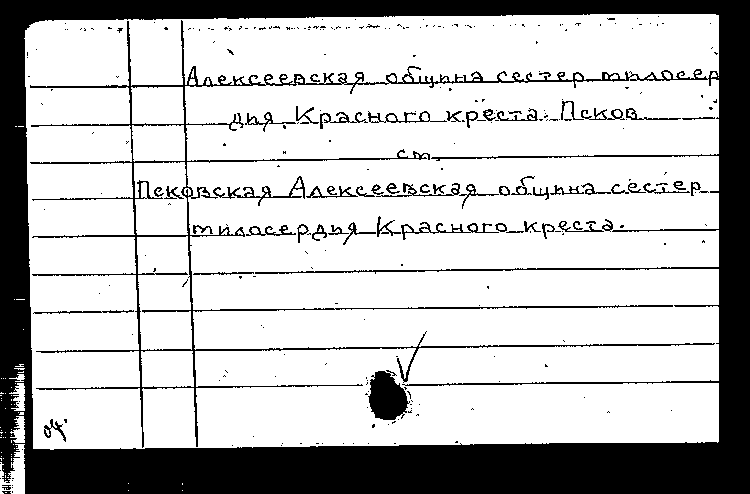 Алексеевская община сестер милосер
дия Красного креста. Псков.
см.
Псковская Алексеевская община сестер
милосердия Красного креста.
04